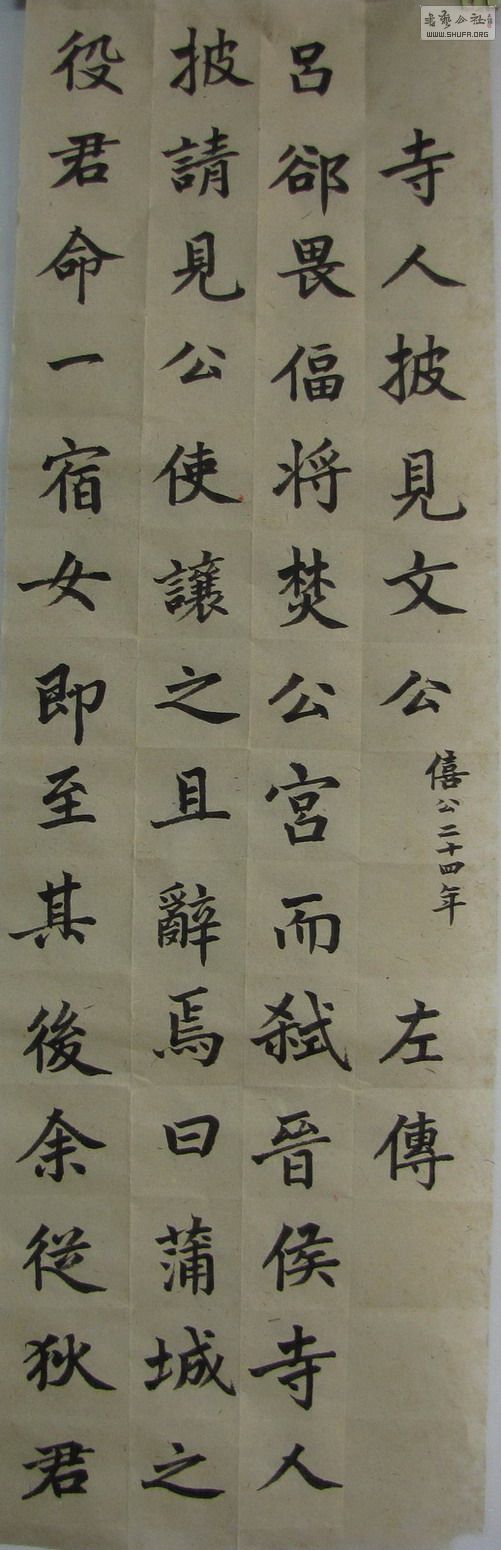 寺人披見文公 僖公二十四年 左傳
呂郤畏偪將焚公宮而弒晉侯寺人
披請見公使讓之且辭焉曰蒲城之
役君命一宿女即至其後余從狄君
書藝公社
WWW.SHUFA.ORG